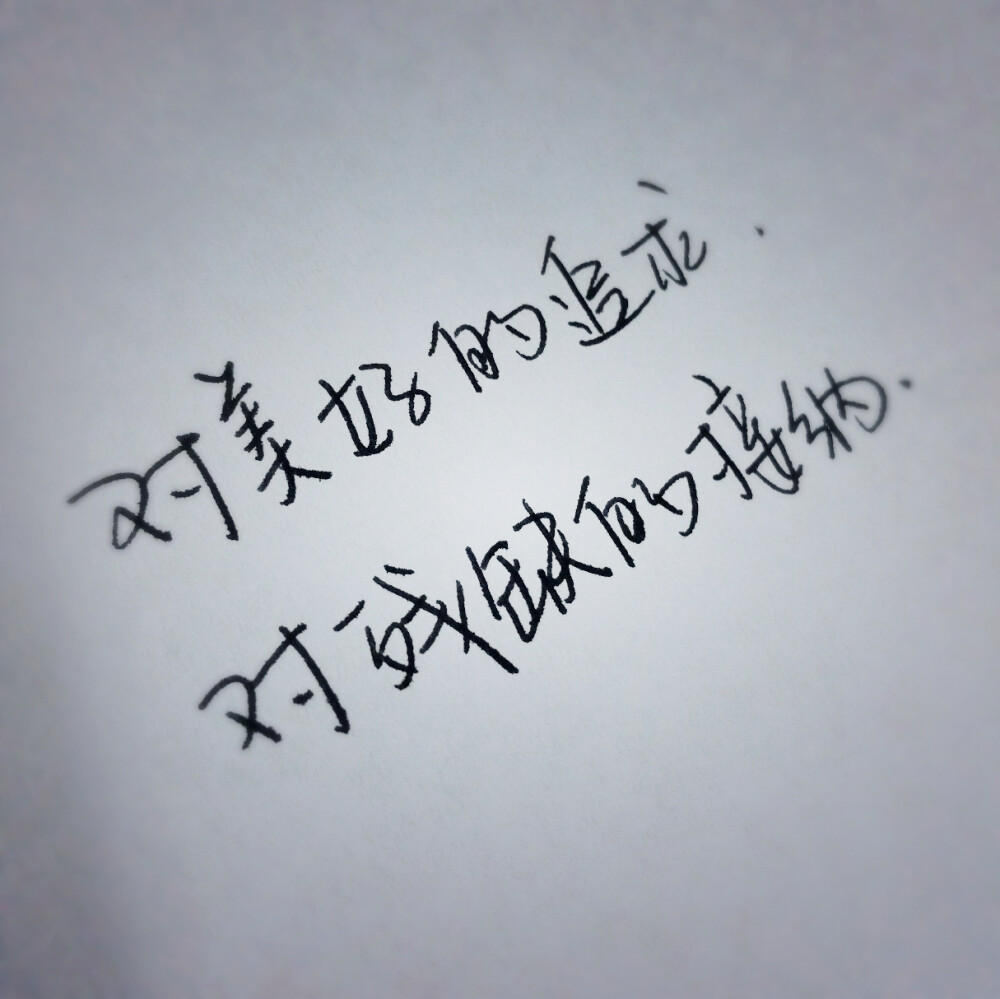 对美好的追求.
对残缺的接纳.